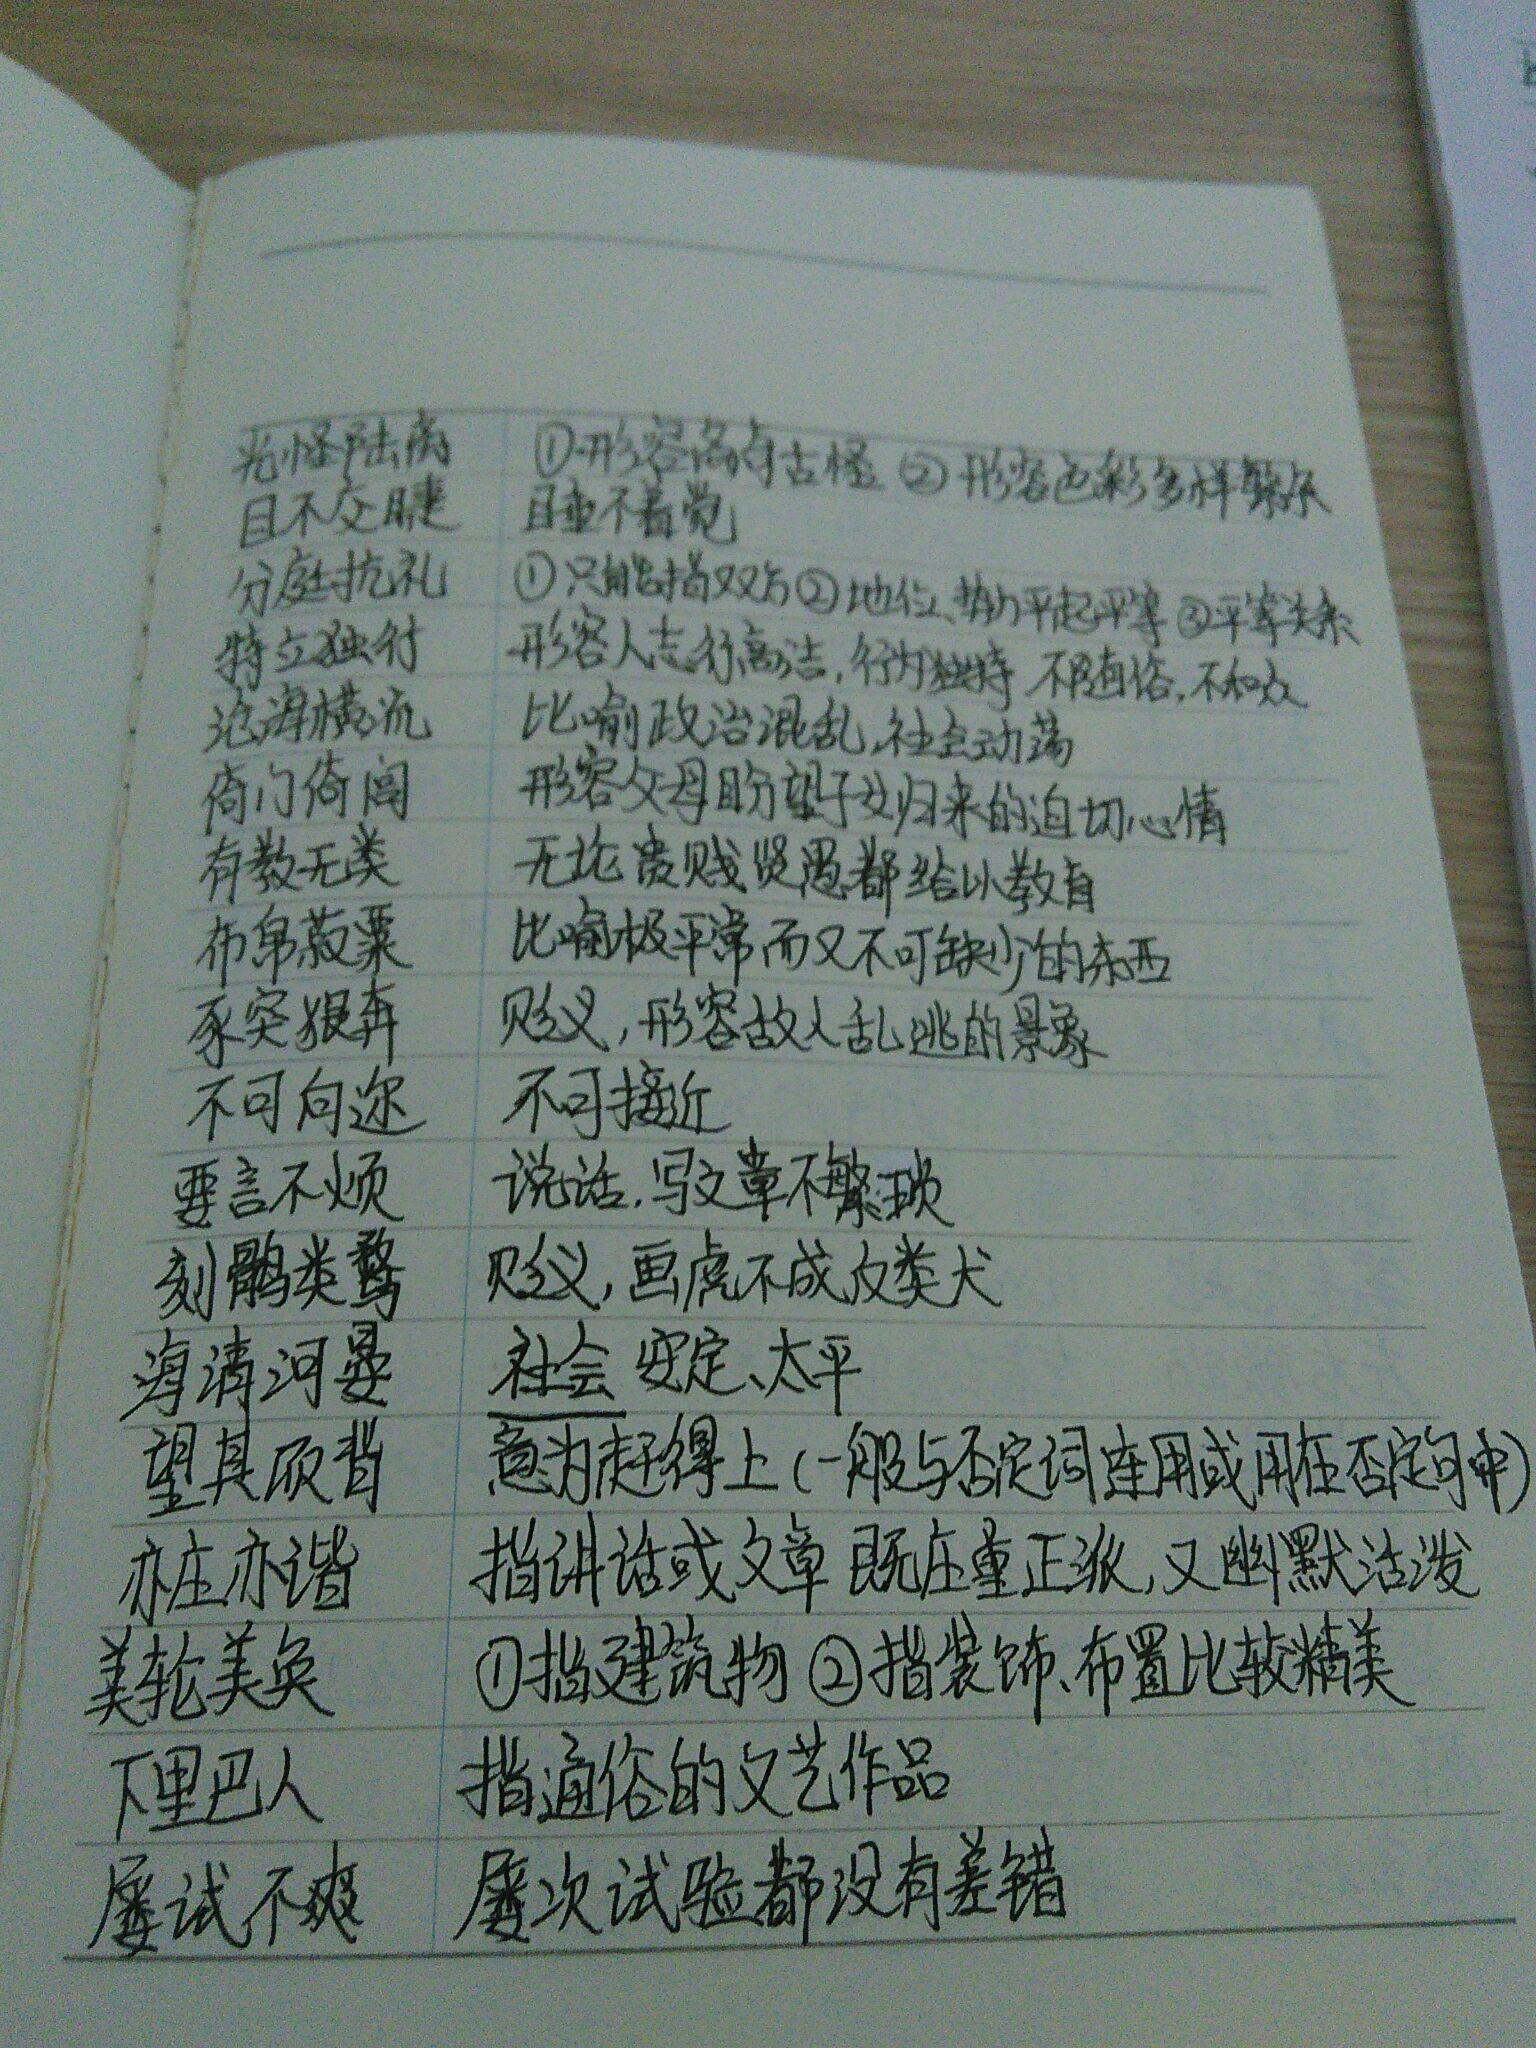 光怪陆离 ①形容离奇古怪 ②形容色彩多样繁杂
目不交睫 睡不着觉
分庭抗礼 ①只能指双方②地位、势力平起平等③平等关系
特立独行 形容人志行高洁,行为独特 不随俗,不和众
沧海横流 比喻政治混乱,社会动荡
倚门倚闾 形容父母盼望子女归来的迫切心情
有教无类 无论贵贱贤愚都给以教育
布帛菽粟 比喻极平常而又不可缺少的东西
豕突狼奔 贬义,形容敌人乱逃的景象
不可向迩 不可接近
要言不烦 说话,写文章不繁琐
刻鹄类鹜 贬义,画虎不成反类犬
海清河晏 社会安定、太平
望其项背 意为赶得上(一般与否定词连用或用在否定句中)
亦庄亦谐 指讲话或文章既庄重正派,又幽默活泼
美轮美奂 ①指建筑物②指装饰、布置比较精美
下里巴人 指通俗的文艺作品
屡试不爽 屡次试验都没有差错